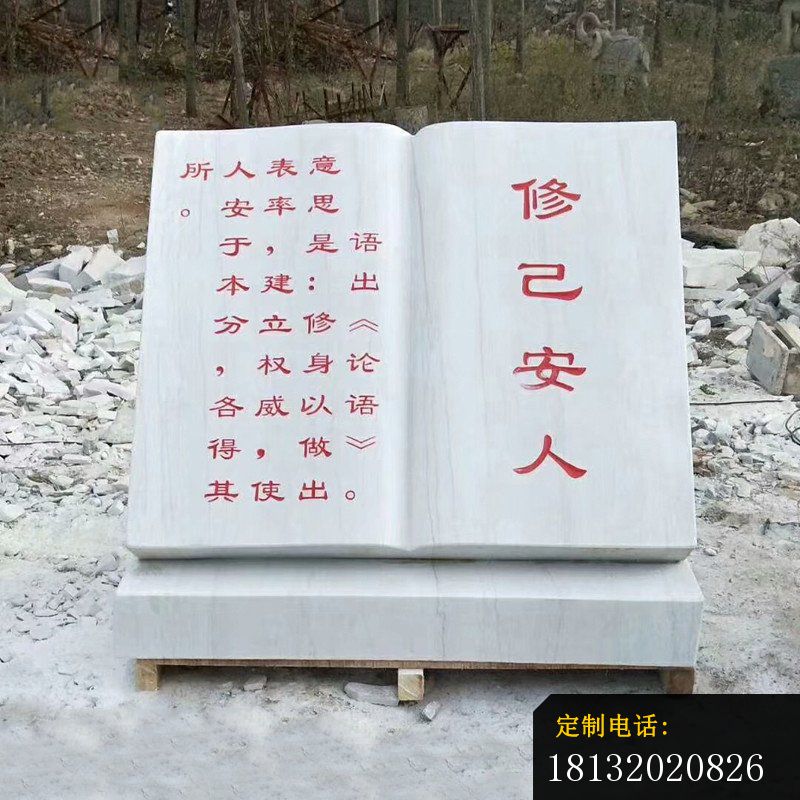 修己安人
语出《论语》。
意思是：修身以做出
表率，建立权威，使
人安于本分，各得其
所。
定制电话：
18132020826